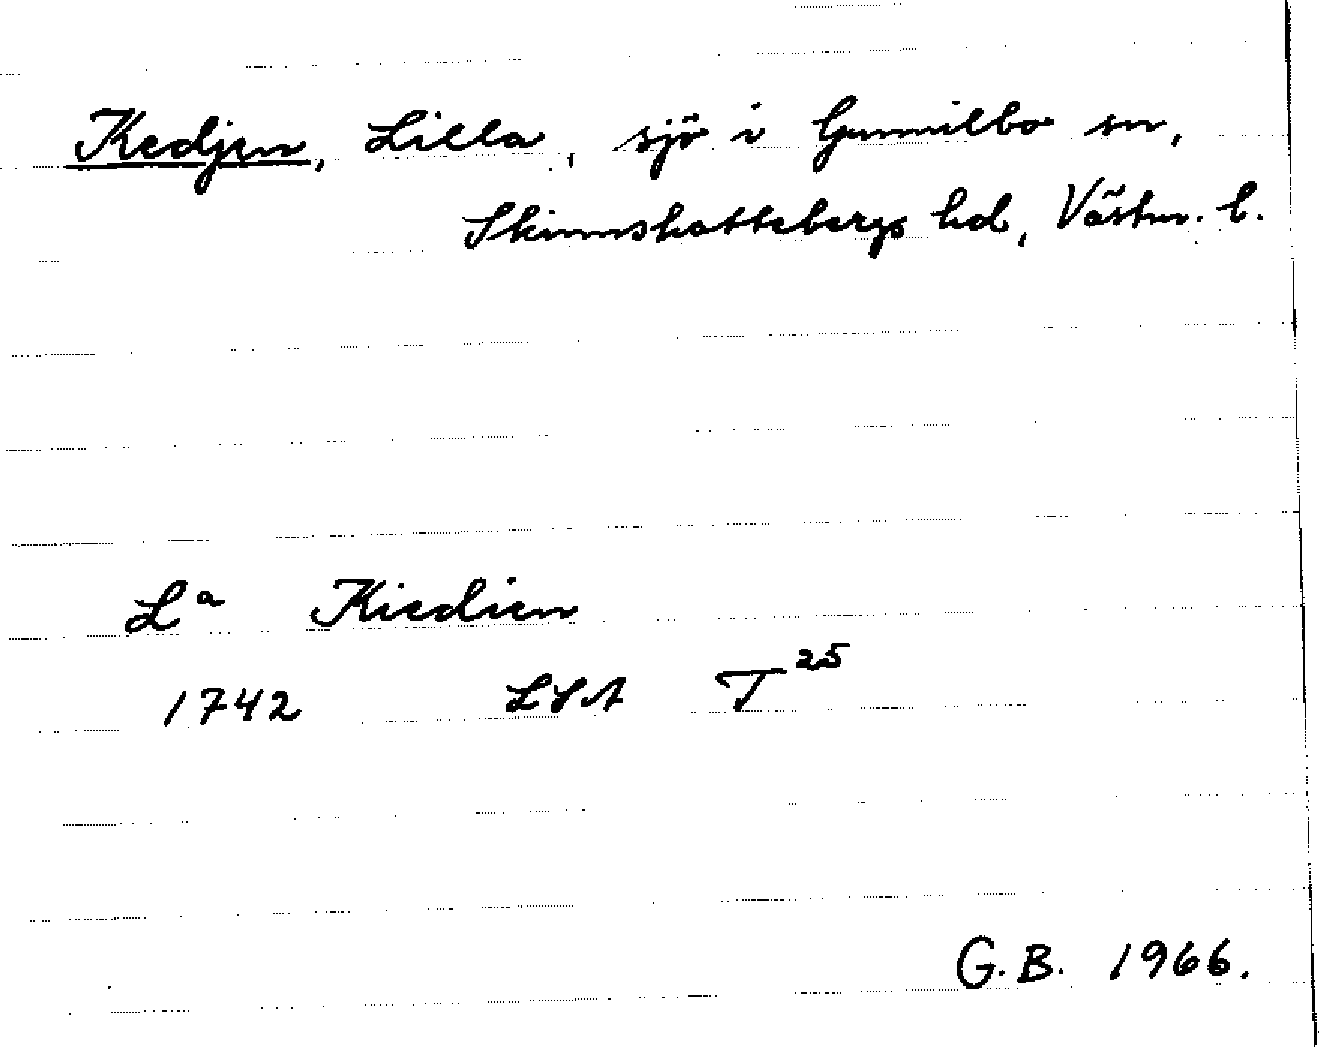 Kedjen, Lilla, sjö i Gunnilbo sn,
Skinnskattebergs hd, Västm. l.
Lª Kiedien
1742 LSA T²⁵
G.B. 1966.